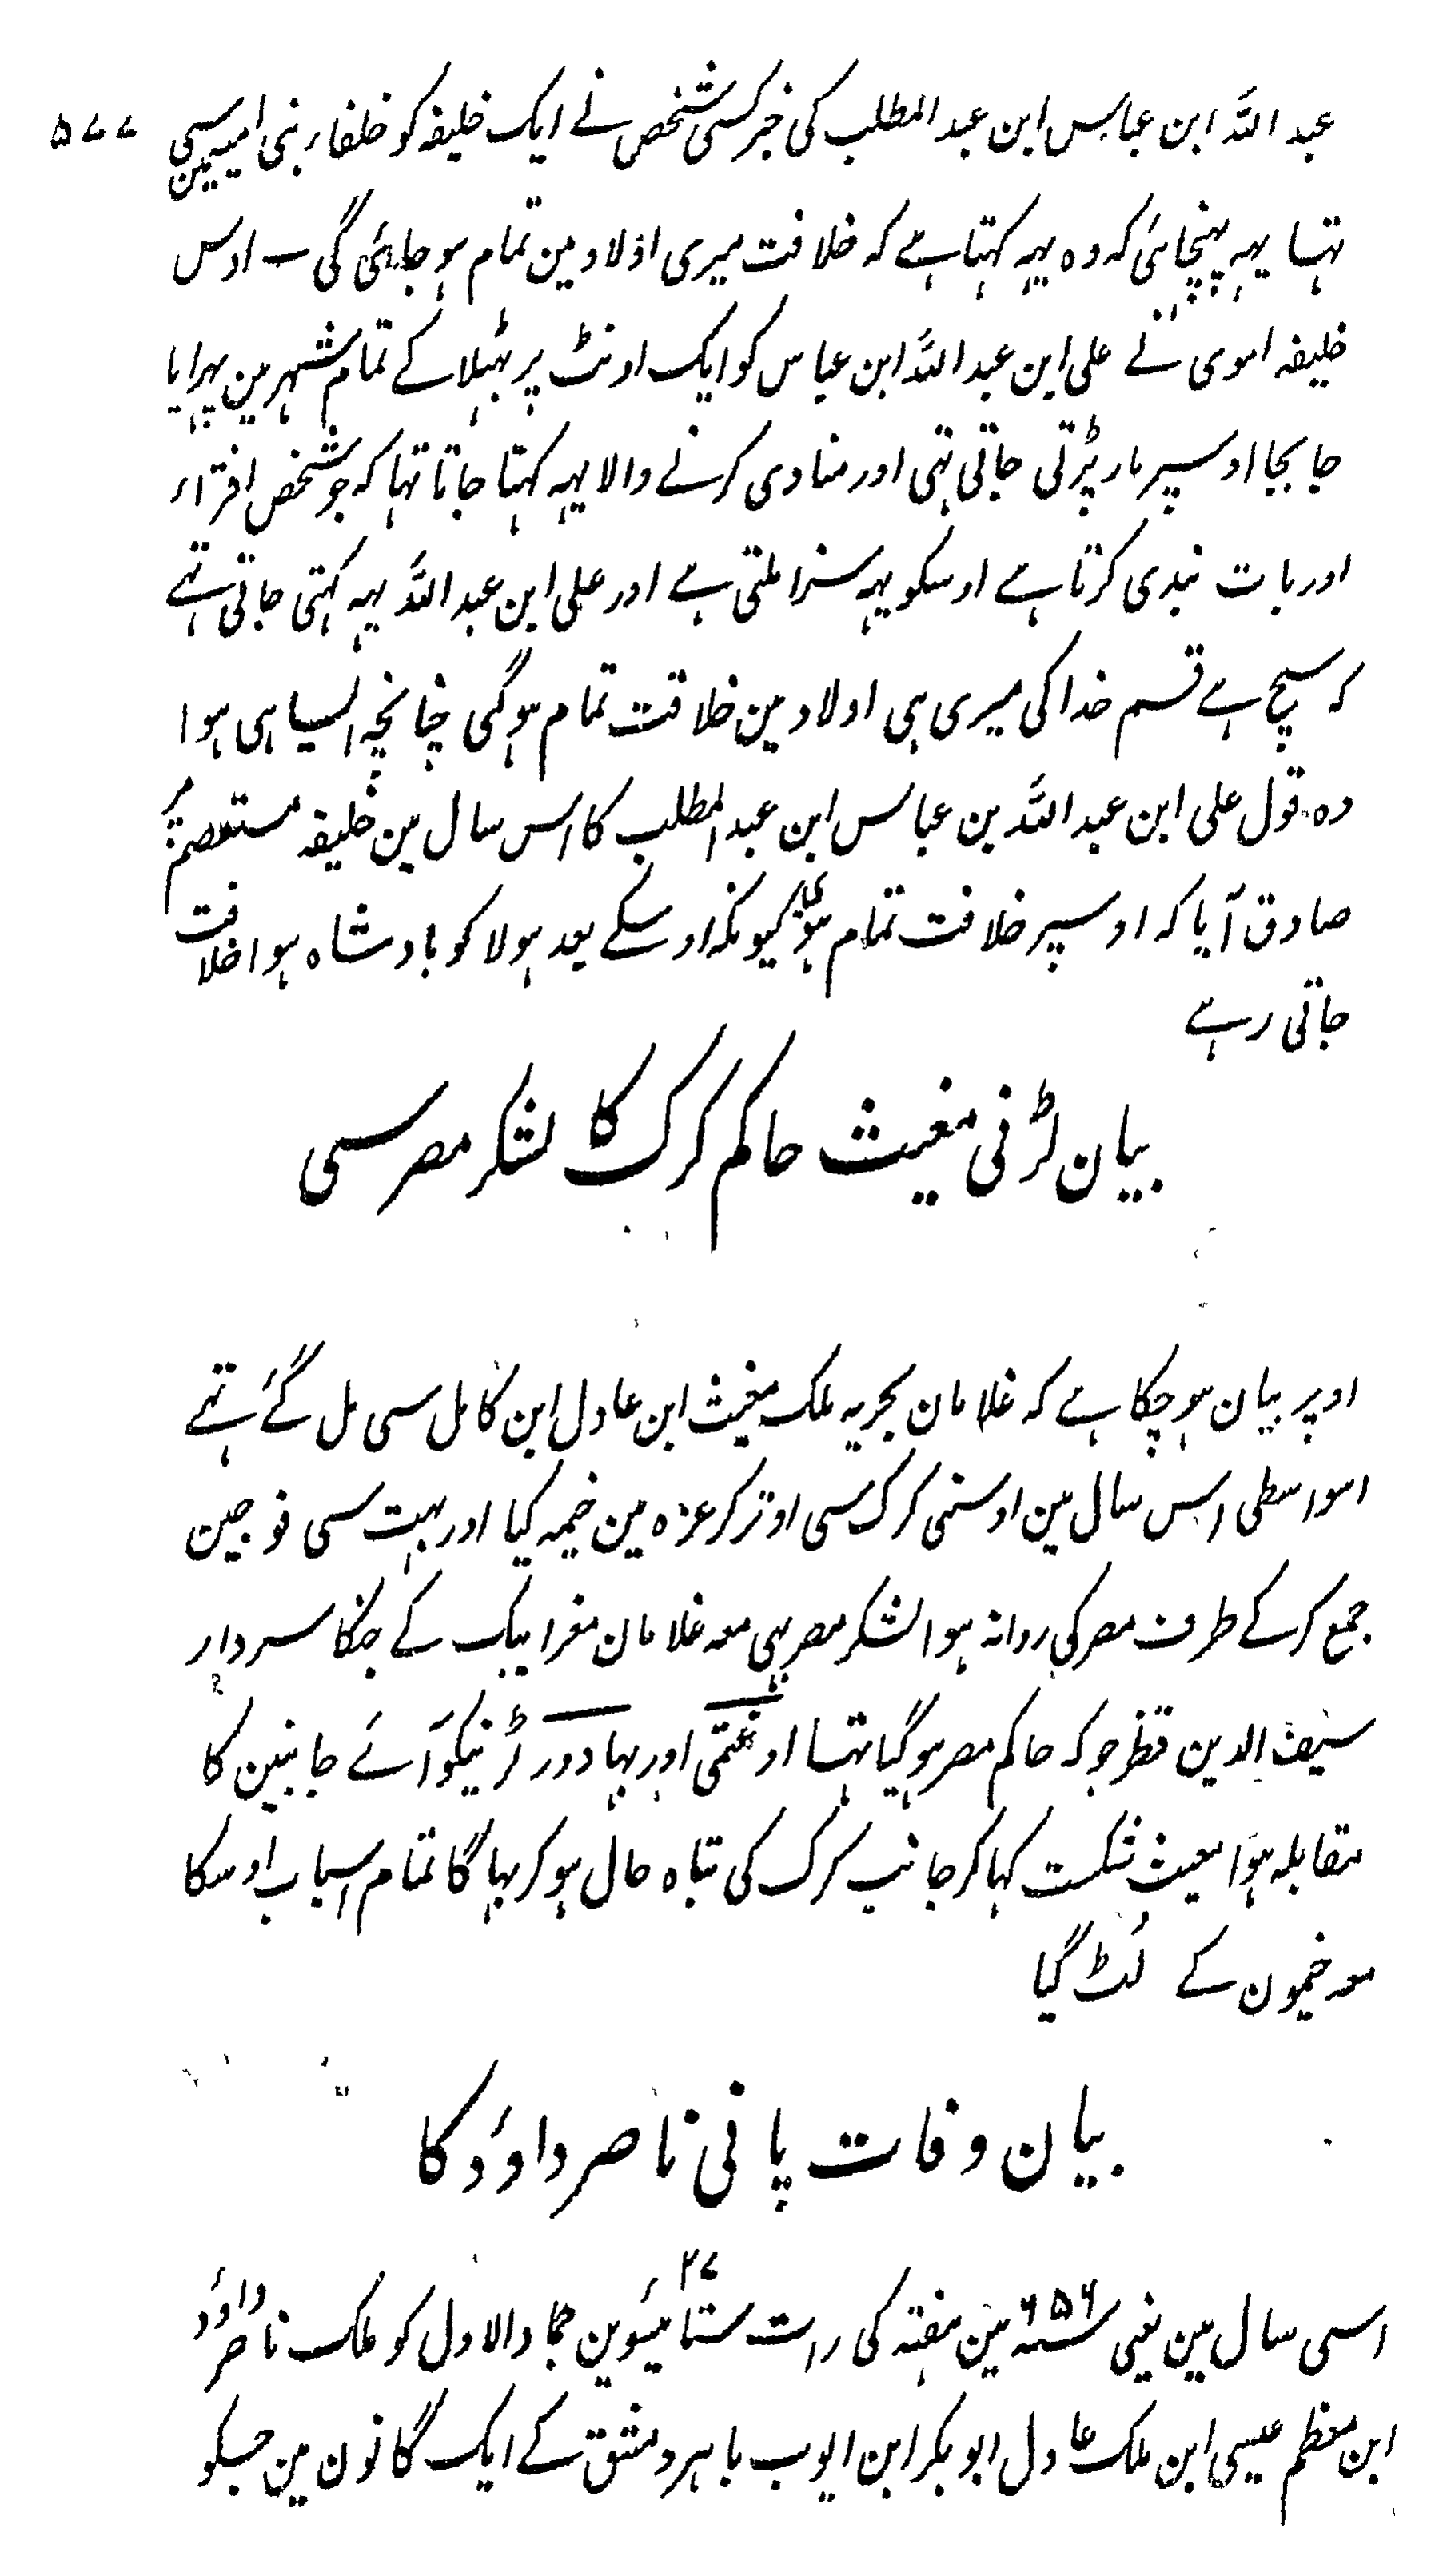 ۵۷۷
عبد اللہ ابن عباس ابن عبد المطلب کی خبر کسی شخص نے ایک خلیفہ کو خلفاء بنی امیہ مین سی
تہا یہہ پہنچائی کہ وہ یہہ کہتا ہے کہ خلافت میری اولاد مین تمام ہو جایئی گی ۔ اوس
خلیفہ اموی نے علی ابن عبد اللہ ابن عباس کو ایک اونٹ پر بٹہلا کے تمام شہر مین پہرایا
جابجا اوسپر مار پڑتی جاتی تہی اور منادی کرنے والا یہہ کہتا جاتا تہا کہ جو شخص افتراء
اور بات بندی کرتا ہے اوسکو یہہ سزا ملتی ہے اور علی ابن عبد اللہ یہہ کہتی جاتی تہے
کہ سچ ہے قسم خدا کی میری ہی اولاد مین خلافت تمام ہوگی چنانچہ ایسا ہی ہوا
وہ قول علی ابن عبد اللہ بن عباس ابن عبد المطلب کا اس سال مین خلیفہ مستعصم پر
صادق آیا کہ اوسپر خلافت تمام ہوئی کیونکہ اوسکے بعد ہولاکو بادشاہ ہوا خلافت
جاتی رہے
بیان لڑنی مغیث حاکم کرک کا لشکر مصر سی
اوپر بیان ہو چکا ہے کہ غلامان بحریہ ملک مغیث ابن عادل ابن کامل سی مل گئے تہے
اسواسطی اس سال مین اوسنی کرک سی اوتر کر غزہ مین خیمہ کیا اور بہت سی فوجین
جمع کر کے طرف مصر کی روانہ ہوا لشکر مصر بہی معہ غلامان معز ایبک کے جنکا سردار
سیف الدین قطز جو کہ حاکم مصر ہو گیا تہا اور غتمی اور بہادور لڑنیکو آئے جانبین کا
مقابلہ ہوا مغیث شکست کہا کر جانب کرک کی تباہ حال ہو کر بہاگا تمام اسباب اوسکا
معہ خیمون کے لُٹ گیا
بیان وفات پانی ناصر داوٗد کا
اسی سال مین یعنی سنہ ۶۵۶ مین ہفتہ کی رات ستائیسوین ۲۷ جمادالاول کو ملک ناصر داوٗد
ابن معظم عیسی ابن ملک عادل ابو بکر ابن ایوب باہر دمشق کے ایک گانون مین جسکو